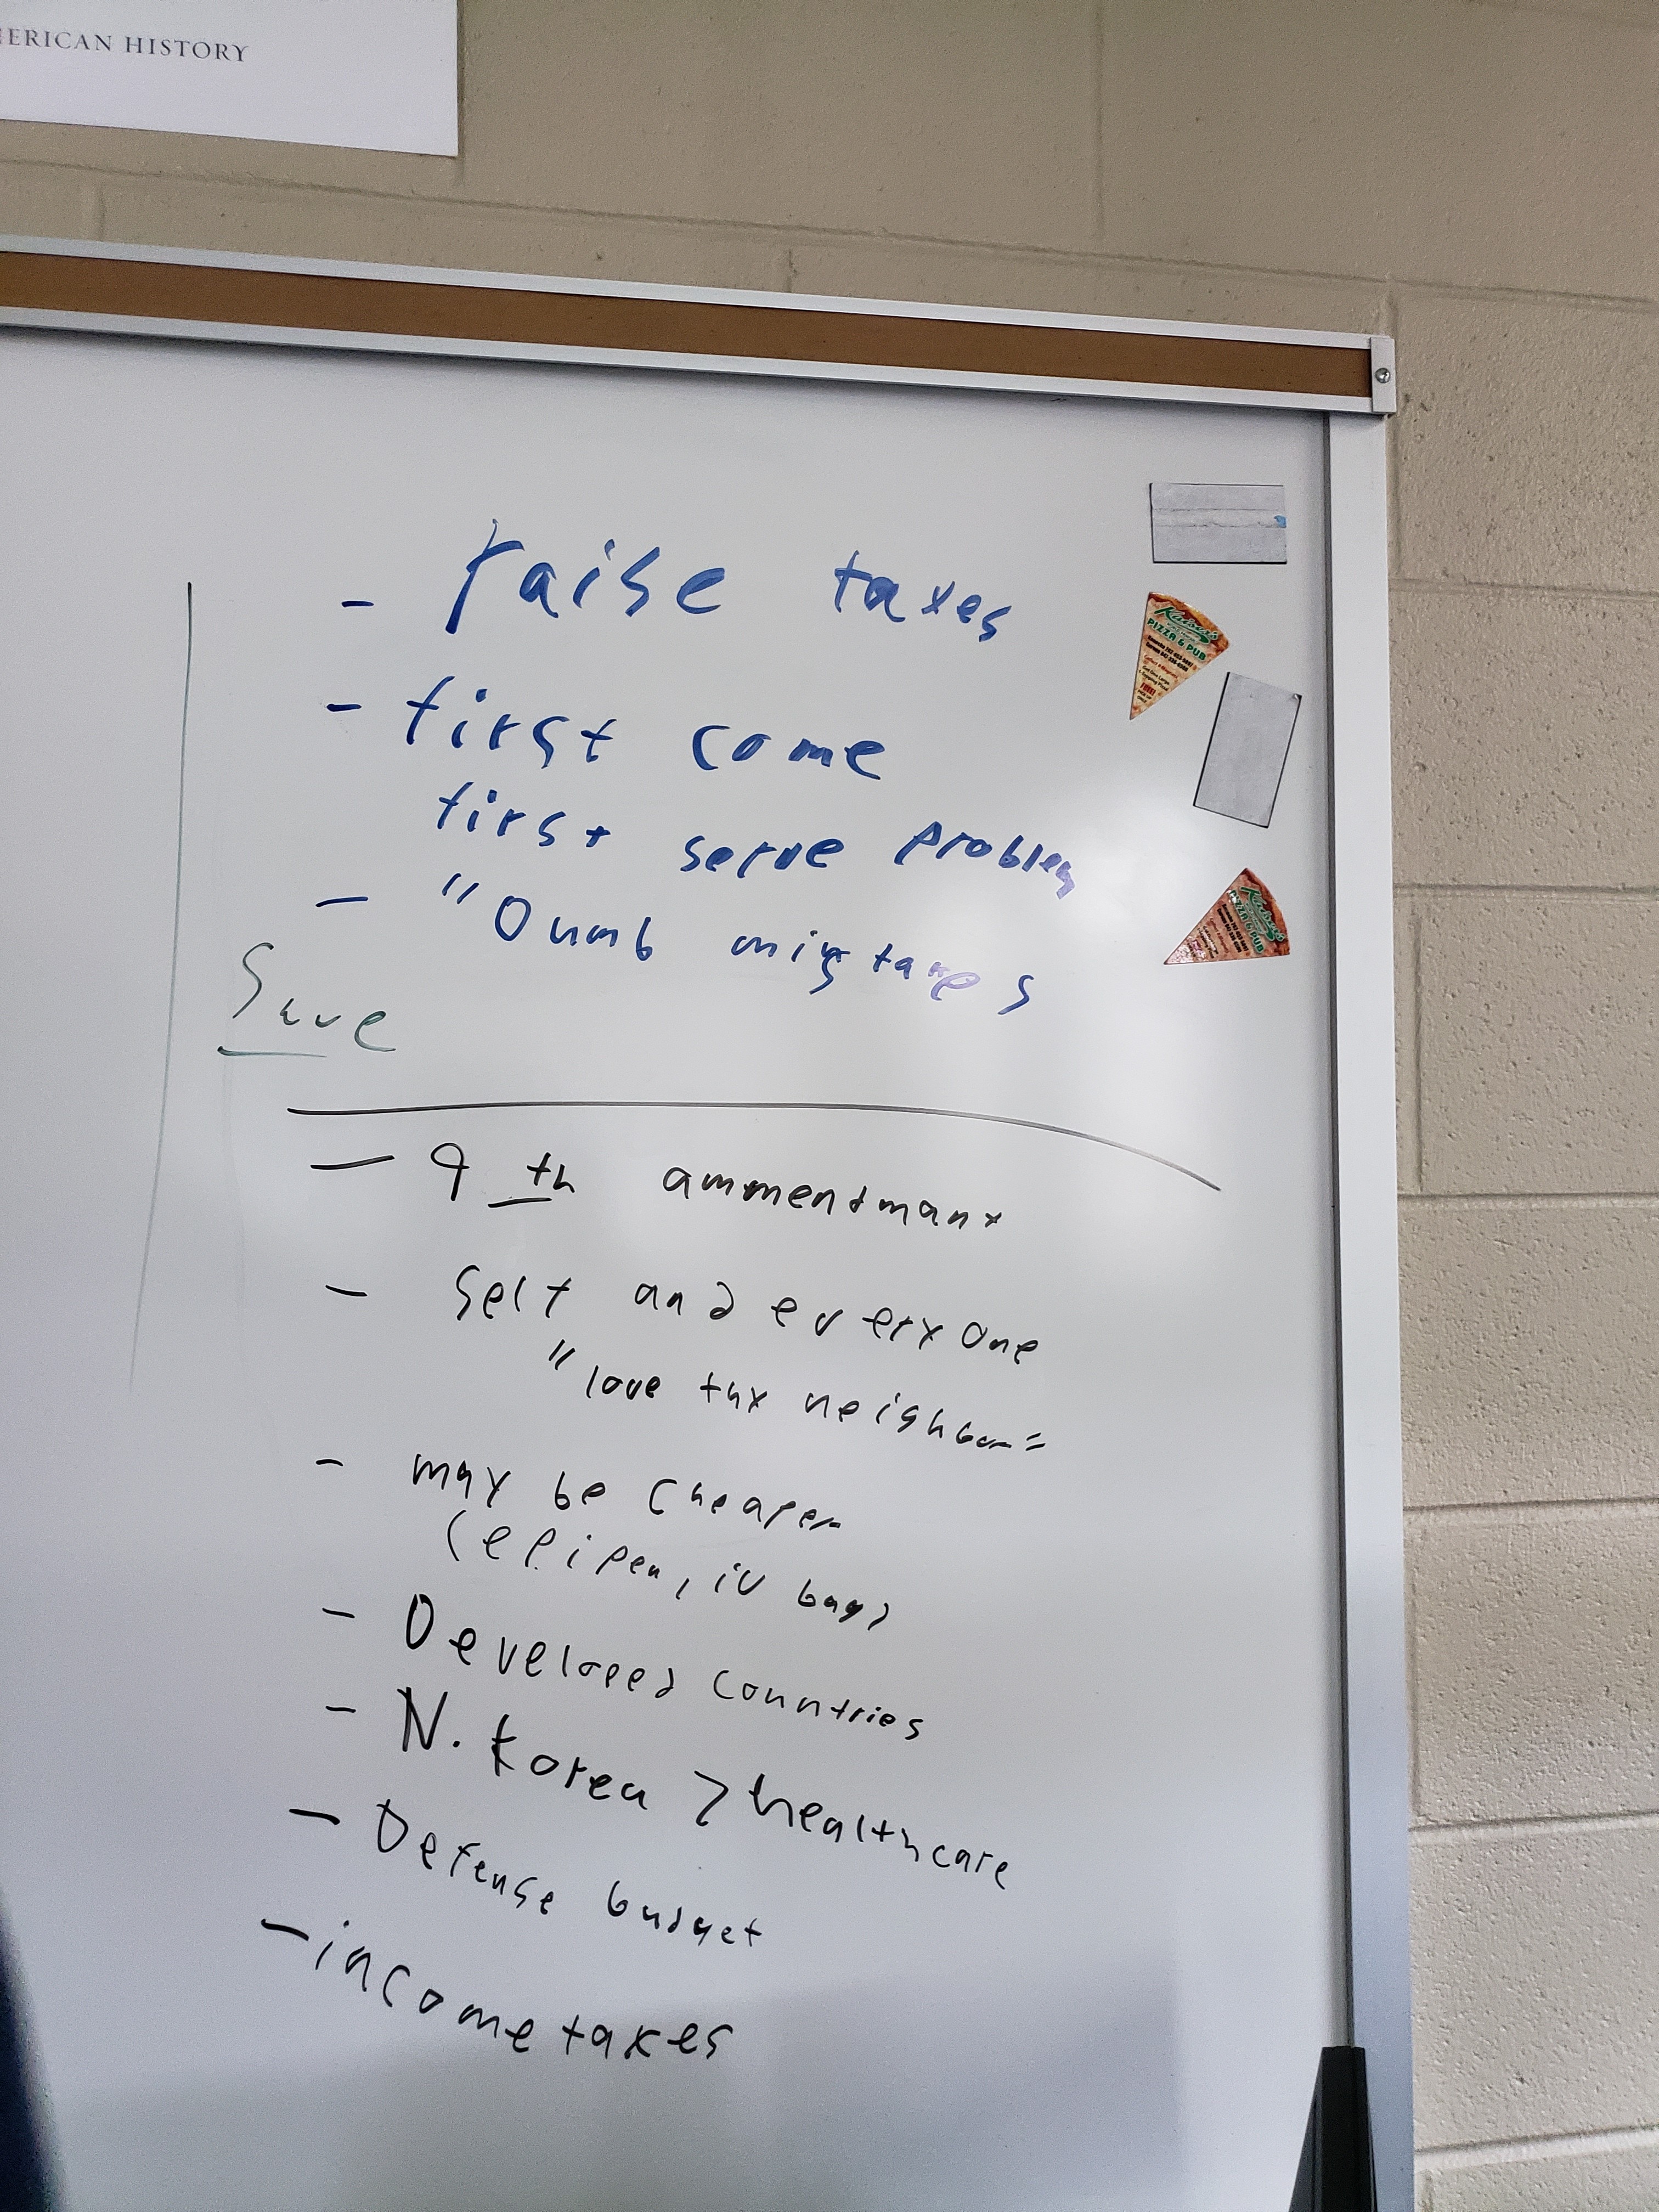 ERICAN HISTORY
- raise taxes
- first come
first serve problem
- "Dumb mistakes
Save
- 9th ammendmant
- Self and everyone
"love thy neighbor"
- may be cheaper
(epipen, iv bag)
- Developed countries
- N. Korea > healthcare
- Defense budget
- income taxes
Kaiser's
PIZZA & PUB
Kaiser's
PIZZA & PUB